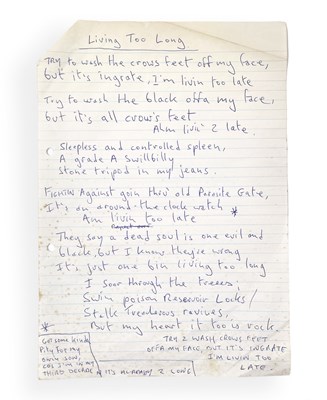 Living Too Long
Try to wash the crows feet off my face,
but it's ingrate, I'm livin too late
Try to wash the black offa my face,
but it's all crow's feet
Ahm livin' 2 late.
Sleepless and controlled spleen,
A grade A swillbilly
Stone tripod in my jeans.
Against goin thru' old Parasite Gate,
It's an around-the clock watch
Am livin too late *
They say a dead soul is one evil and
black, but I know they're wrong
It's just one bin living too long
I soar through the treees;
Swim poison Reservoir Locks/
Stalk Treacherous ravines,
But my heart it too is rock.
Try 2 wash crows feet
offa my face but it's ingrate
I'm livin too
late.
*
Got some kinda
Pity for my
own soul,
cos I'm in my
third decade & it's already 2 long